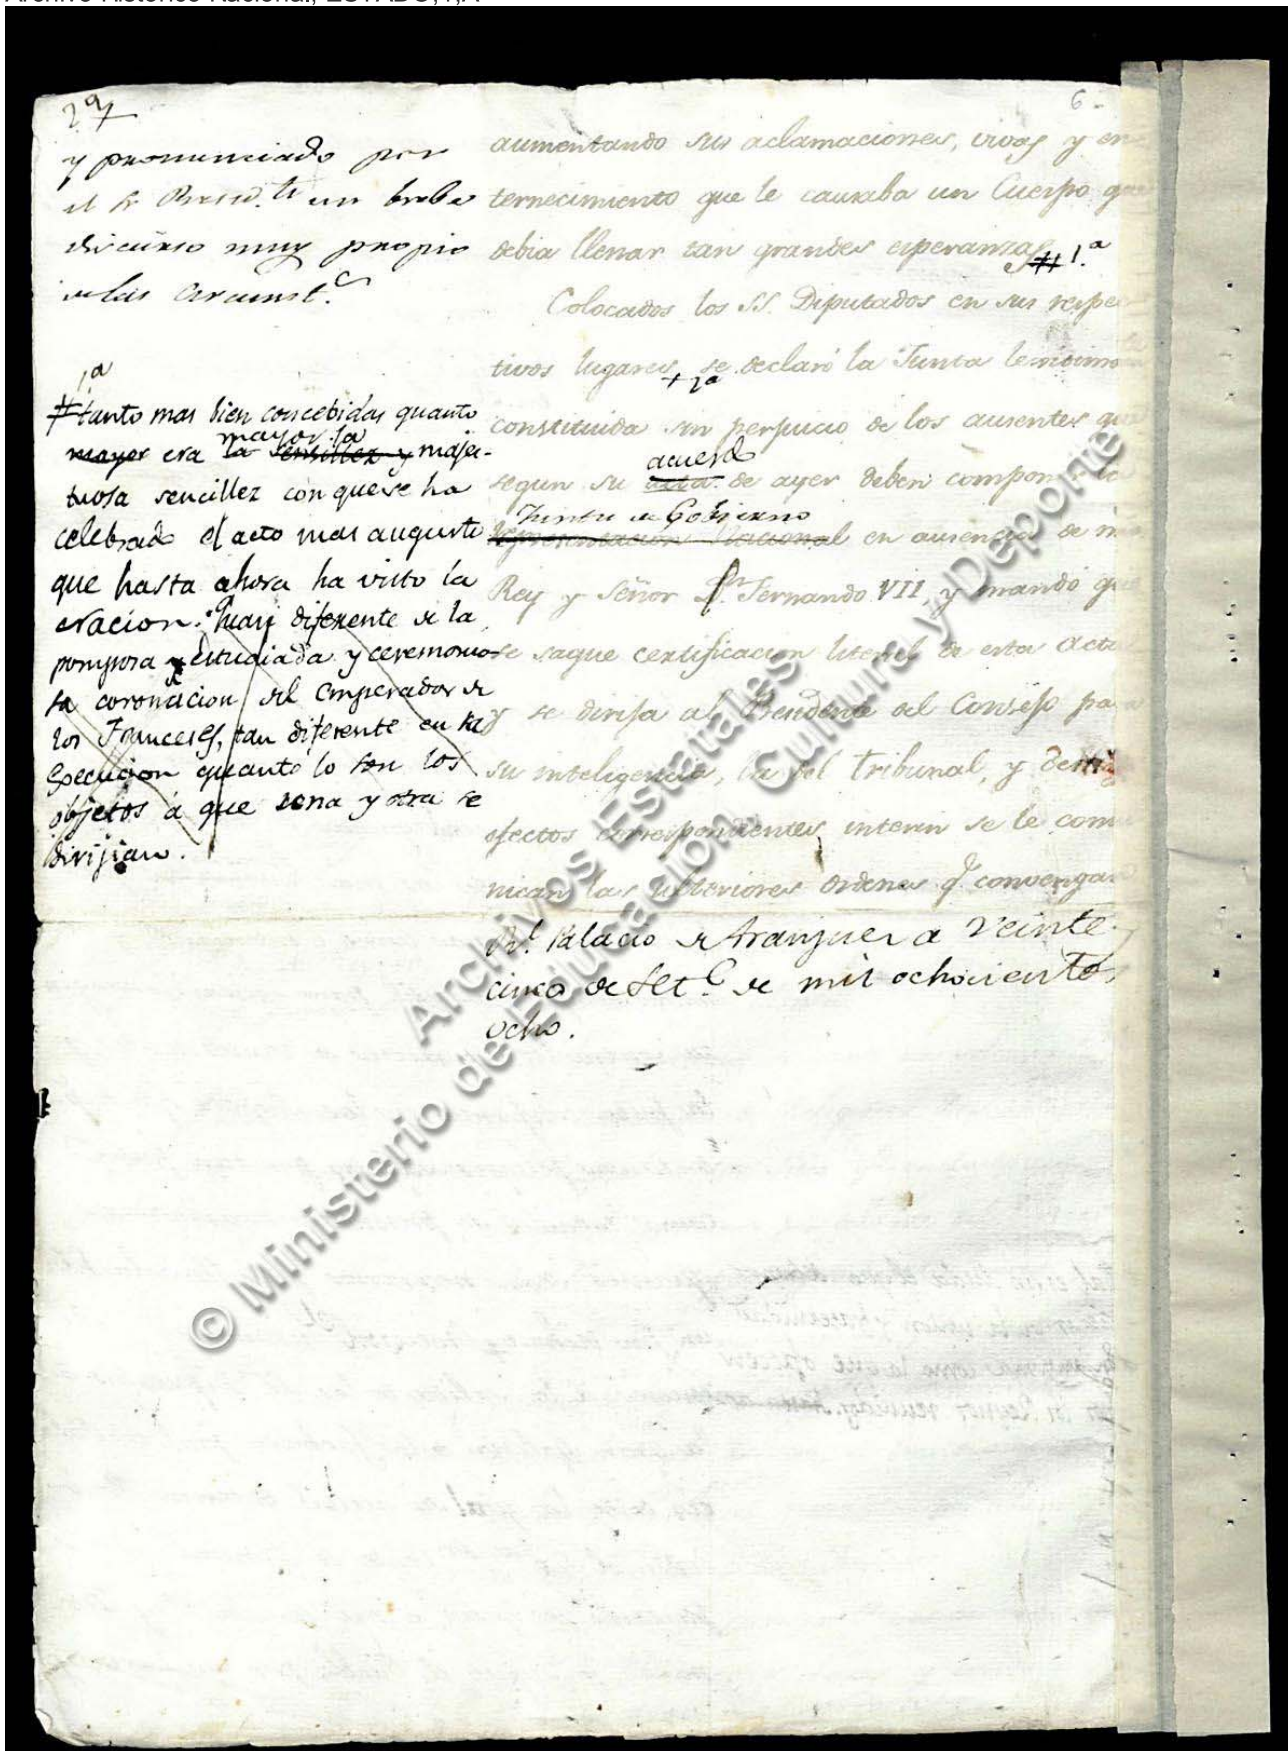 6
2ª
y pronunciado por
el Sr Presid.te un brebe
discurso muy propio
de las circunst.s
1ª
# tanto mas bien concebidas quanto
mayor era la sensillez y mayor la majes-
tuosa sencillez con que se ha
celebrado el acto mas augusto
que hasta ahora ha visto la
Nacion. Quan diferente de la
pomposa y estudiada y ceremonio-
sa coronacion del Emperador de
los Franceses, tan diferente en la
execucion quanto lo son los
objetos á que una y otra se
dirijian.
aumentando sus aclamaciones, vivas y en
ternecimiento que le causaba un Cuerpo que
debia llenar tan grandes esperanzas # 1.ª
Colocados los SS. Diputados en sus respec
tivos lugares + 2ª se declaró la Junta lexitima
constituida sin perjuicio de los ausentes que
segun su acta acuerdo de ayer deben componer la
representacion Nacional Junta de Gobierno en ausencia de
Rey y Señor Dn. Fernando VII, y mandó que
se saque certificacion literal de esta Acta
y se dirija al Presidente del Consejo para
su inteligencia, la del tribunal, y demas
efectos correspondientes, interin se le comu
nican las ulteriores ordenes q.e convengan
Rl. Palacio de Aranjuez a Veinte y
cinco de Set.e de mil ochocientos
ocho.
© Ministerio de Educacion, Cultura y Deporte
Archivos Estatales